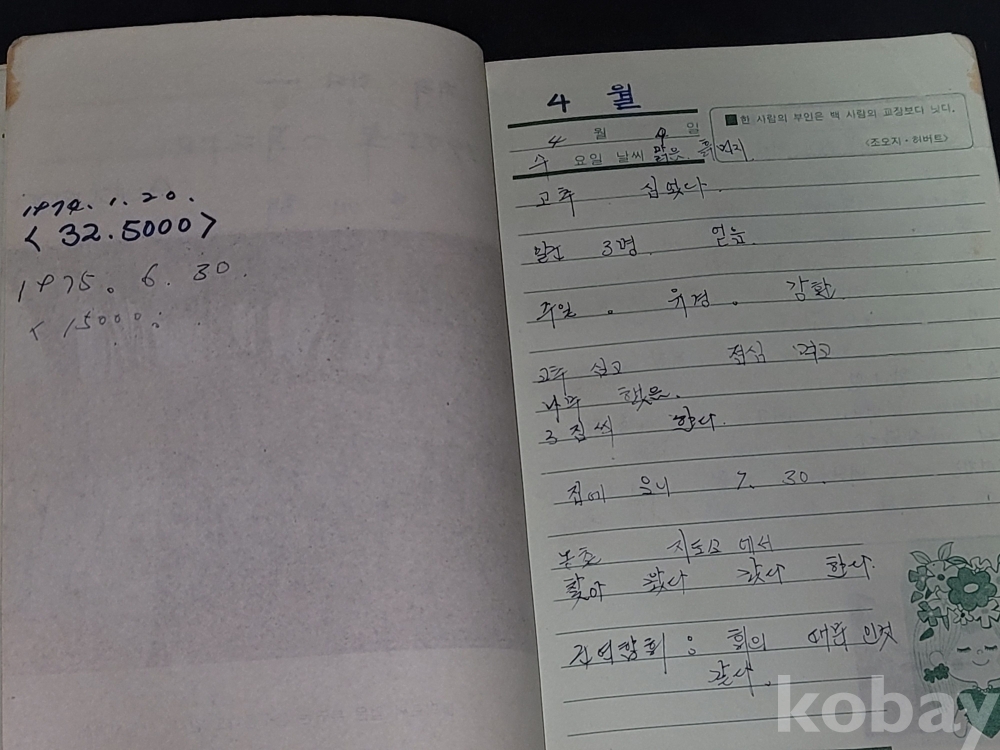 1974. 1. 20.
< 32.5000 >
1975. 6. 30.
< 15000:
4 월
4 월 4 일
수 요일 날씨 맑음
■ 한 사람의 부인은 백 사람의 교장보다 낫다.
<조오지·허버트>
고추 심었다.
3명 얻음
주일. 위경. 감환
고추 심고 점심 먹고
나무 했음.
3 짐씩 한다.
집에 오니 7. 30.
농촌 지도소에서
찾아 왔다 갔다 한다.
지역항회 : 회의 때문 인것
같다.
kobay